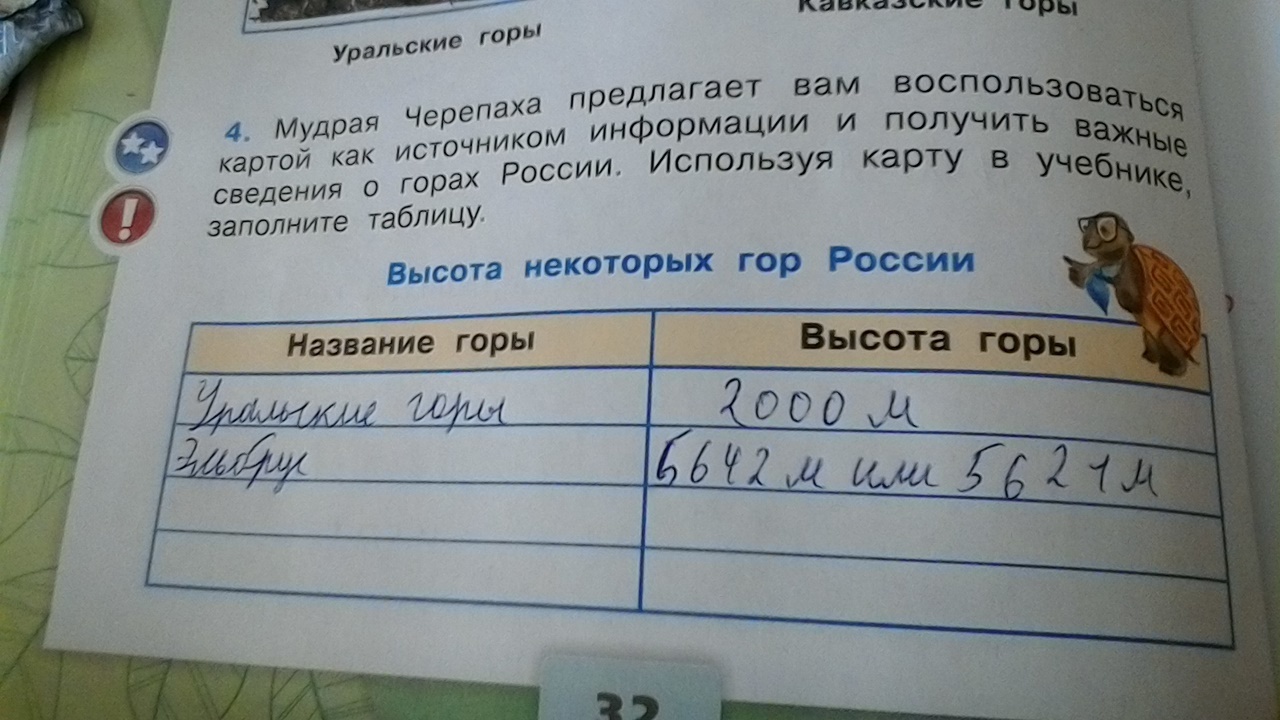 Кавказские горы
Уральские горы
4. Мудрая Черепаха предлагает вам воспользоваться
картой как источником информации и получить важные
сведения о горах России. Используя карту в учебнике,
заполните таблицу.
Высота некоторых гор России
Название горы Высота горы
Уральские горы 2000 м
Эльбрус 5642 м или 5621 м
32